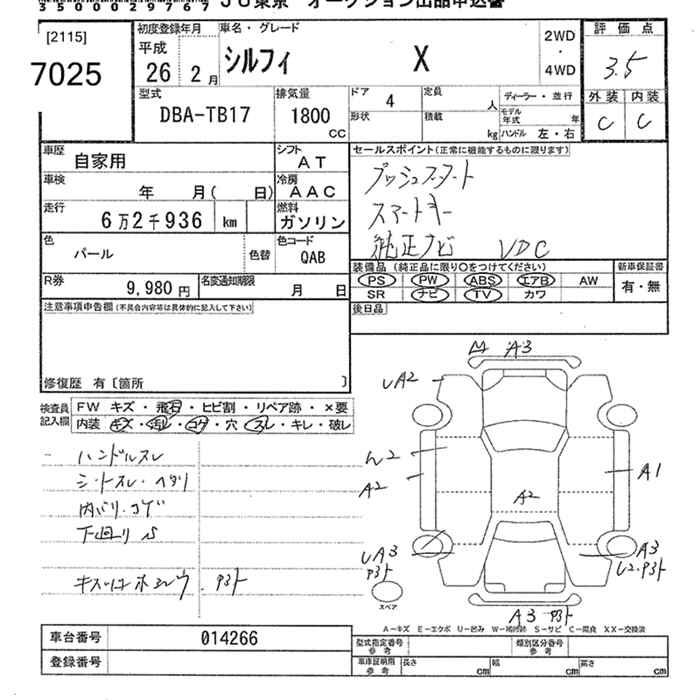 3500029767 JU東京 オークション出品申込書
[2115]
7025
初度登録年月 車名・グレード
平成
26 2月 シルフィ X
2WD
・
4WD
評価点
3.5
外装 内装
C C
型式 DBA-TB17
排気量 1800 CC
ドア 4
形状
定員 人
積載 kg
ディーラー・並行
モデル年式 年
ハンドル 左・右
車歴 自家用
シフト AT
セールスポイント(正常に機能するものに限ります)
プッシュスタート
スマートキー
純正ナビ VDC
車検 年 月( 日)
冷房 AAC
走行 6万2千936 km
燃料 ガソリン
色 パール 色替
色コード QAB
装備品 (純正品に限り○をつけてください)
PS PW ABS エアB AW
SR ナビ TV カワ
新車保証書
有・無
R券 9,980円
名変通知期限 月 日
後日品
注意事項申告欄(不具合内容等は具体的に記入して下さい)
修復歴 有〔箇所 〕
検査員記入欄
FW キズ・飛石・ヒビ割・リペア跡・×要
内装 キズ・汚レ・コゲ・穴・スレ・キレ・破レ
ハンドルスレ
シートスレ・ヘタリ
内バリ・コゲ
下回り S
A3
UA2
A2
A2
A1
UA3
A3
U2
A3
スペア
A-キズ E-エクボ U-凹み W-補修跡 S-サビ C-腐食 XX-交換済
車台番号 014266
登録番号
型式指定番号 参考
類別区分番号 参考
車庫証明用 参考 長さ cm 幅 cm 高さ cm